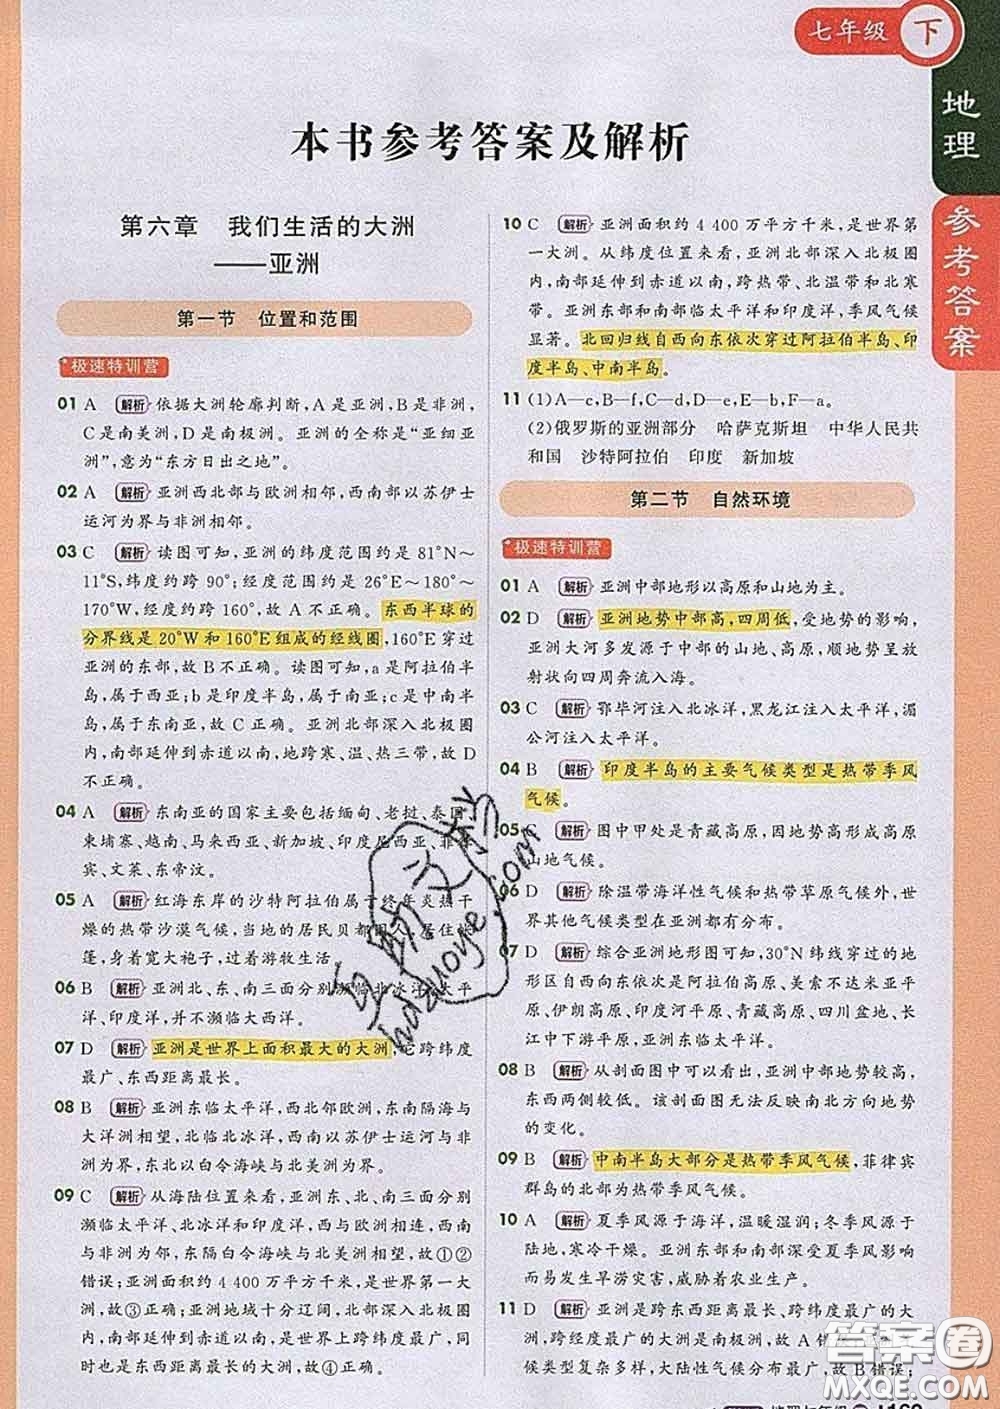 七年级 下
地理
参考答案
本书参考答案及解析
第六章 我们生活的大洲
——亚洲
第一节 位置和范围
极速特训营
01 A 解析 依据大洲轮廓判断，A是亚洲，B是非洲，
C是南美洲，D是南极洲。亚洲的全称是“亚细亚
洲”，意为“东方日出之地”。
02 A 解析 亚洲西北部与欧洲相邻，西南部以苏伊士
运河为界与非洲相邻。
03 C 解析 读图可知，亚洲的纬度范围约是81°N～
11°S，纬度约跨90°；经度范围约是26°E～180°～
170°W，经度约跨160°，故A不正确。东西半球的
分界线是20°W和160°E组成的经线圈，160°E穿过
亚洲的东部，故B不正确。读图可知，a是阿拉伯半
岛，属于西亚；b是印度半岛，属于南亚；c是中南半
岛，属于东南亚，故C正确。亚洲北部深入北极圈
内，南部延伸到赤道以南，地跨寒、温、热三带，故D
不正确。
04 A 解析 东南亚的国家主要包括缅甸、老挝、泰国、
柬埔寨、越南、马来西亚、新加坡、印度尼西亚、菲律
宾、文莱、东帝汶。
05 A 解析 红海东岸的沙特阿拉伯属于终年炎热干
燥的热带沙漠气候，当地的居民贝都因人居住帐
篷，身着宽大袍子，过着游牧生活。
06 B 解析 亚洲北、东、南三面分别濒临北冰洋、太平
洋、印度洋，并不濒临大西洋。
07 D 解析 亚洲是世界上面积最大的大洲，它跨纬度
最广、东西距离最长。
08 B 解析 亚洲东临太平洋，西北邻欧洲，东南隔海与
大洋洲相望，北临北冰洋，西南以苏伊士运河与非洲
为界，东北以白令海峡与北美洲为界。
09 C 解析 从海陆位置来看，亚洲东、北、南三面分别
濒临太平洋、北冰洋和印度洋，西与欧洲相连，西南
与非洲为邻，东隔白令海峡与北美洲相望，故①②
错误；亚洲面积约4 400万平方千米，是世界第一大
洲，故③正确；亚洲地域十分辽阔，北部深入北极圈
内，南部延伸到赤道以南，是世界上跨纬度最广，同
时也是东西距离最长的大洲，故④正确。
10 C 解析 亚洲面积约4 400万平方千米，是世界第
一大洲。从纬度位置来看，亚洲北部深入北极圈内，
南部延伸到赤道以南，跨热带、北温带和北寒
带。亚洲东部和南部临太平洋和印度洋，季风气候
显著。北回归线自西向东依次穿过阿拉伯半岛、印
度半岛、中南半岛。
11 (1)A—c，B—f，C—d，D—e，E—b，F—a。
(2)俄罗斯的亚洲部分 哈萨克斯坦 中华人民共
和国 沙特阿拉伯 印度 新加坡
第二节 自然环境
极速特训营
01 A 解析 亚洲中部地形以高原和山地为主。
02 D 解析 亚洲地势中部高，四周低，受地势的影响，
亚洲大河多发源于中部的山地、高原，顺地势呈放
射状向四周奔流入海。
03 C 解析 鄂毕河注入北冰洋，黑龙江注入太平洋，湄
公河注入太平洋。
04 B 解析 印度半岛的主要气候类型是热带季风
气候。
05 解析 图中甲处是青藏高原，因地势高形成高原
山地气候。
06 D 解析 除温带海洋性气候和热带草原气候外，世
界其他气候类型在亚洲都有分布。
07 D 解析 综合亚洲地形图可知，30°N纬线穿过的地
形区自西向东依次是阿拉伯高原、美索不达米亚平
原、伊朗高原、印度河平原、青藏高原、四川盆地、长
江中下游平原，亚洲东临太平洋。
08 B 解析 从剖面图中可以看出，亚洲中部地势较高，
东西两侧较低。该剖面图无法反映南北方向地势
的变化。
09 B 解析 中南半岛大部分是热带季风气候，菲律宾
群岛的北部为热带季风气候。
10 A 解析 夏季风源于海洋，温暖湿润；冬季风源于
陆地，寒冷干燥。亚洲东部和南部深受夏季风影响
易发生旱涝灾害，威胁着农业生产。
11 D 解析 亚洲是跨东西距离最长、跨纬度最广的大
洲，跨经度最广的大洲是南极洲，故A错误；
候类型复杂多样，大陆性气候分布最广，故B错误；
答案圈
MXQE.COM